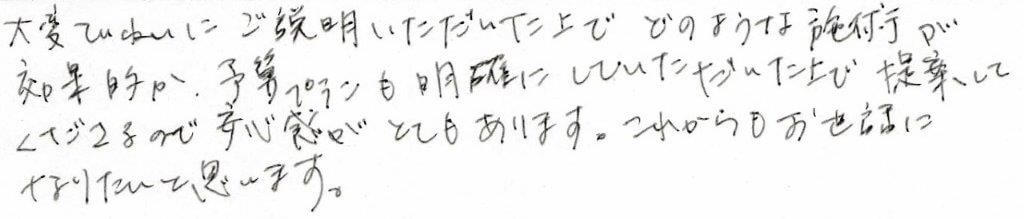 大変ていねいにご説明いただいた上でどのような施術が
効果的か、予算プランも明確にしていただいた上で提案して
くださるので安心感がとてもあります。これからもお世話に
なりたいと思います。